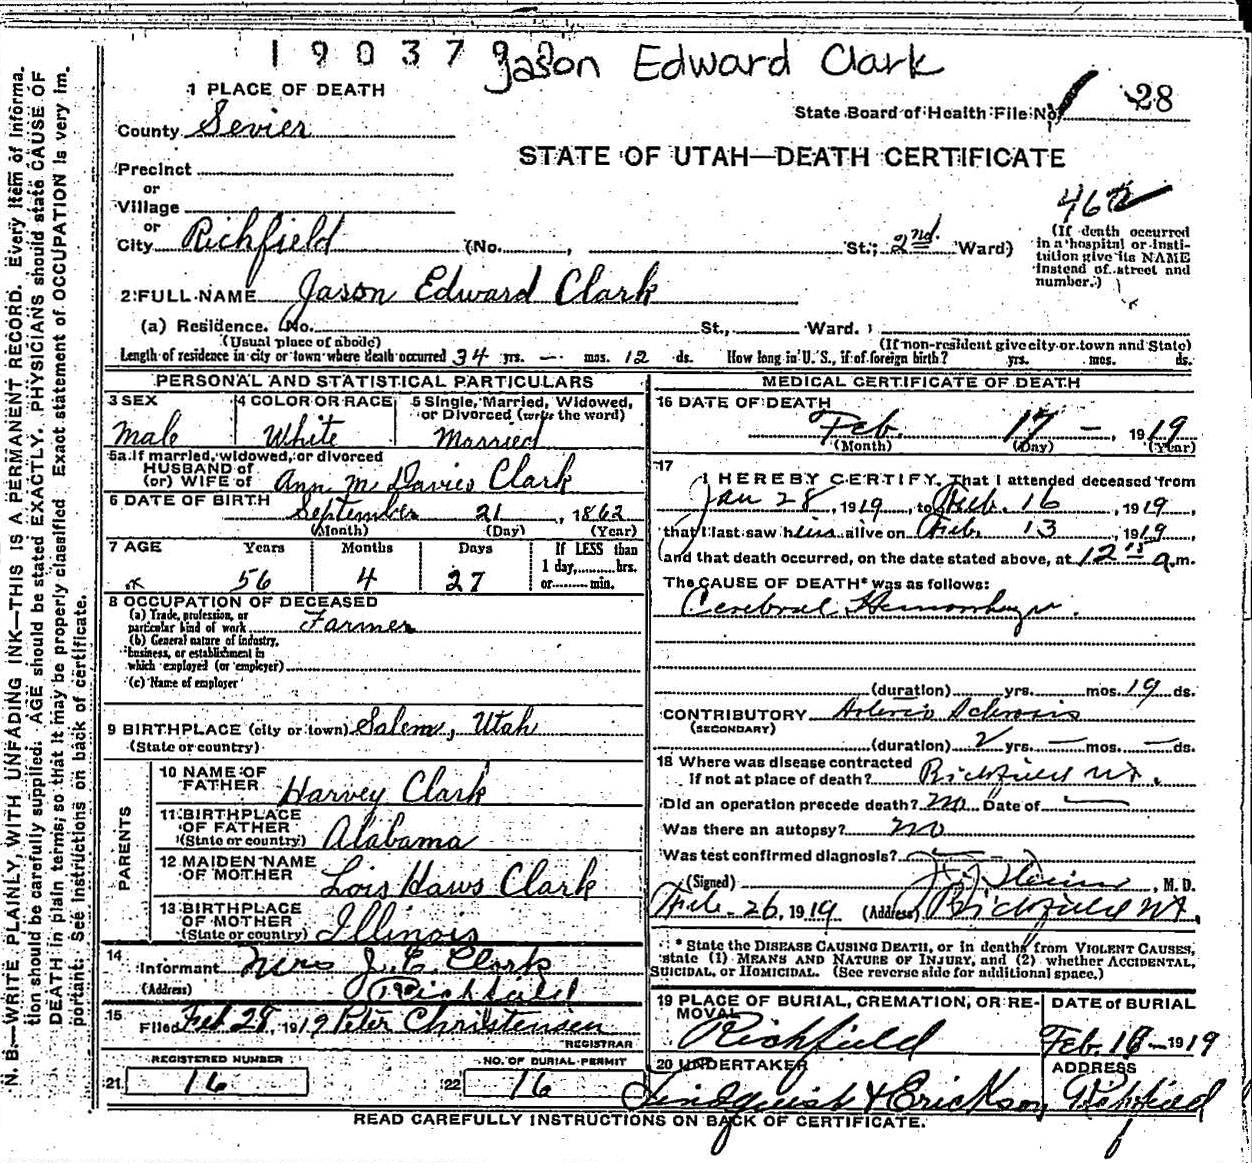 1 9 0 3 7 9 9
Jason Edward Clark
1 PLACE OF DEATH
State Board of Health File No. 28
County Sevier
STATE OF UTAH—DEATH CERTIFICATE
Precinct
or
Village
or
City Richfield (No. , St.; 2nd. Ward)
(If death occurred in a hospital or institution give its NAME instead of street and number.)
2 FULL NAME Jason Edward Clark
(a) Residence. No. St., Ward.
(Usual place of abode) (If non-resident give city or town and State)
Length of residence in city or town where death occurred 34 yrs. — mos. 12 ds. How long in U. S., if of foreign birth? yrs. mos. ds.
PERSONAL AND STATISTICAL PARTICULARS
3 SEX 4 COLOR OR RACE 5 Single, Married, Widowed, or Divorced (write the word)
Male White Married
5a If married, widowed, or divorced
HUSBAND of
(or) WIFE of Ann M Davies Clark
6 DATE OF BIRTH September 21, 1862
(Month) (Day) (Year)
7 AGE Years Months Days If LESS than
1 day, hrs.
56 4 27 or min.
8 OCCUPATION OF DECEASED
(a) Trade, profession, or
particular kind of work Farmer
(b) General nature of industry,
business, or establishment in
which employed (or employer)
(c) Name of employer
9 BIRTHPLACE (city or town) Salem, Utah
(State or country)
PARENTS
10 NAME OF
FATHER Harvey Clark
11 BIRTHPLACE
OF FATHER
(State or country) Alabama
12 MAIDEN NAME
OF MOTHER Lois Haws Clark
13 BIRTHPLACE
OF MOTHER
(State or country) Illinois
14
Informant Mrs J. E. Clark
(Address) Richfield
15
Filed Feb 28, 1919 Peter Christensen
REGISTRAR
REGISTERED NUMBER NO. OF BURIAL PERMIT
21 16 22 16
MEDICAL CERTIFICATE OF DEATH
16 DATE OF DEATH
Feb. 17 —, 1919
(Month) (Day) (Year)
17
I HEREBY CERTIFY, That I attended deceased from
Jan 28, 1919, to Feb. 16, 1919
that I last saw him alive on Feb. 13, 1919
and that death occurred, on the date stated above, at 12 15 a.m.
The CAUSE OF DEATH* was as follows:
Cerebral Hemorrhage
(duration) yrs. mos. 19 ds.
CONTRIBUTORY Arterio Sclerosis
(SECONDARY)
(duration) 2 yrs. — mos. — ds.
18 Where was disease contracted
if not at place of death? Richfield Ut.
Did an operation precede death? No Date of —
Was there an autopsy? No
Was test confirmed diagnosis? —
(Signed) , M. D.
Feb. 26, 1919 (Address) Richfield Ut.
* State the DISEASE CAUSING DEATH, or in deaths from VIOLENT CAUSES,
state (1) MEANS AND NATURE OF INJURY, and (2) whether ACCIDENTAL,
SUICIDAL, or HOMICIDAL. (See reverse side for additional space.)
19 PLACE OF BURIAL, CREMATION, OR RE-
MOVAL
DATE of BURIAL
Richfield Feb. 1919
20 UNDERTAKER ADDRESS
Lindquist & Erickson, Richfield
READ CAREFULLY INSTRUCTIONS ON BACK OF CERTIFICATE.
N. B.—WRITE PLAINLY, WITH UNFADING INK—THIS IS A PERMANENT RECORD. Every item of informa-
tion should be carefully supplied. AGE should be stated EXACTLY. PHYSICIANS should state CAUSE OF
DEATH in plain terms, so that it may be properly classified. Exact statement of OCCUPATION is very im-
portant. See instructions on back of certificate.